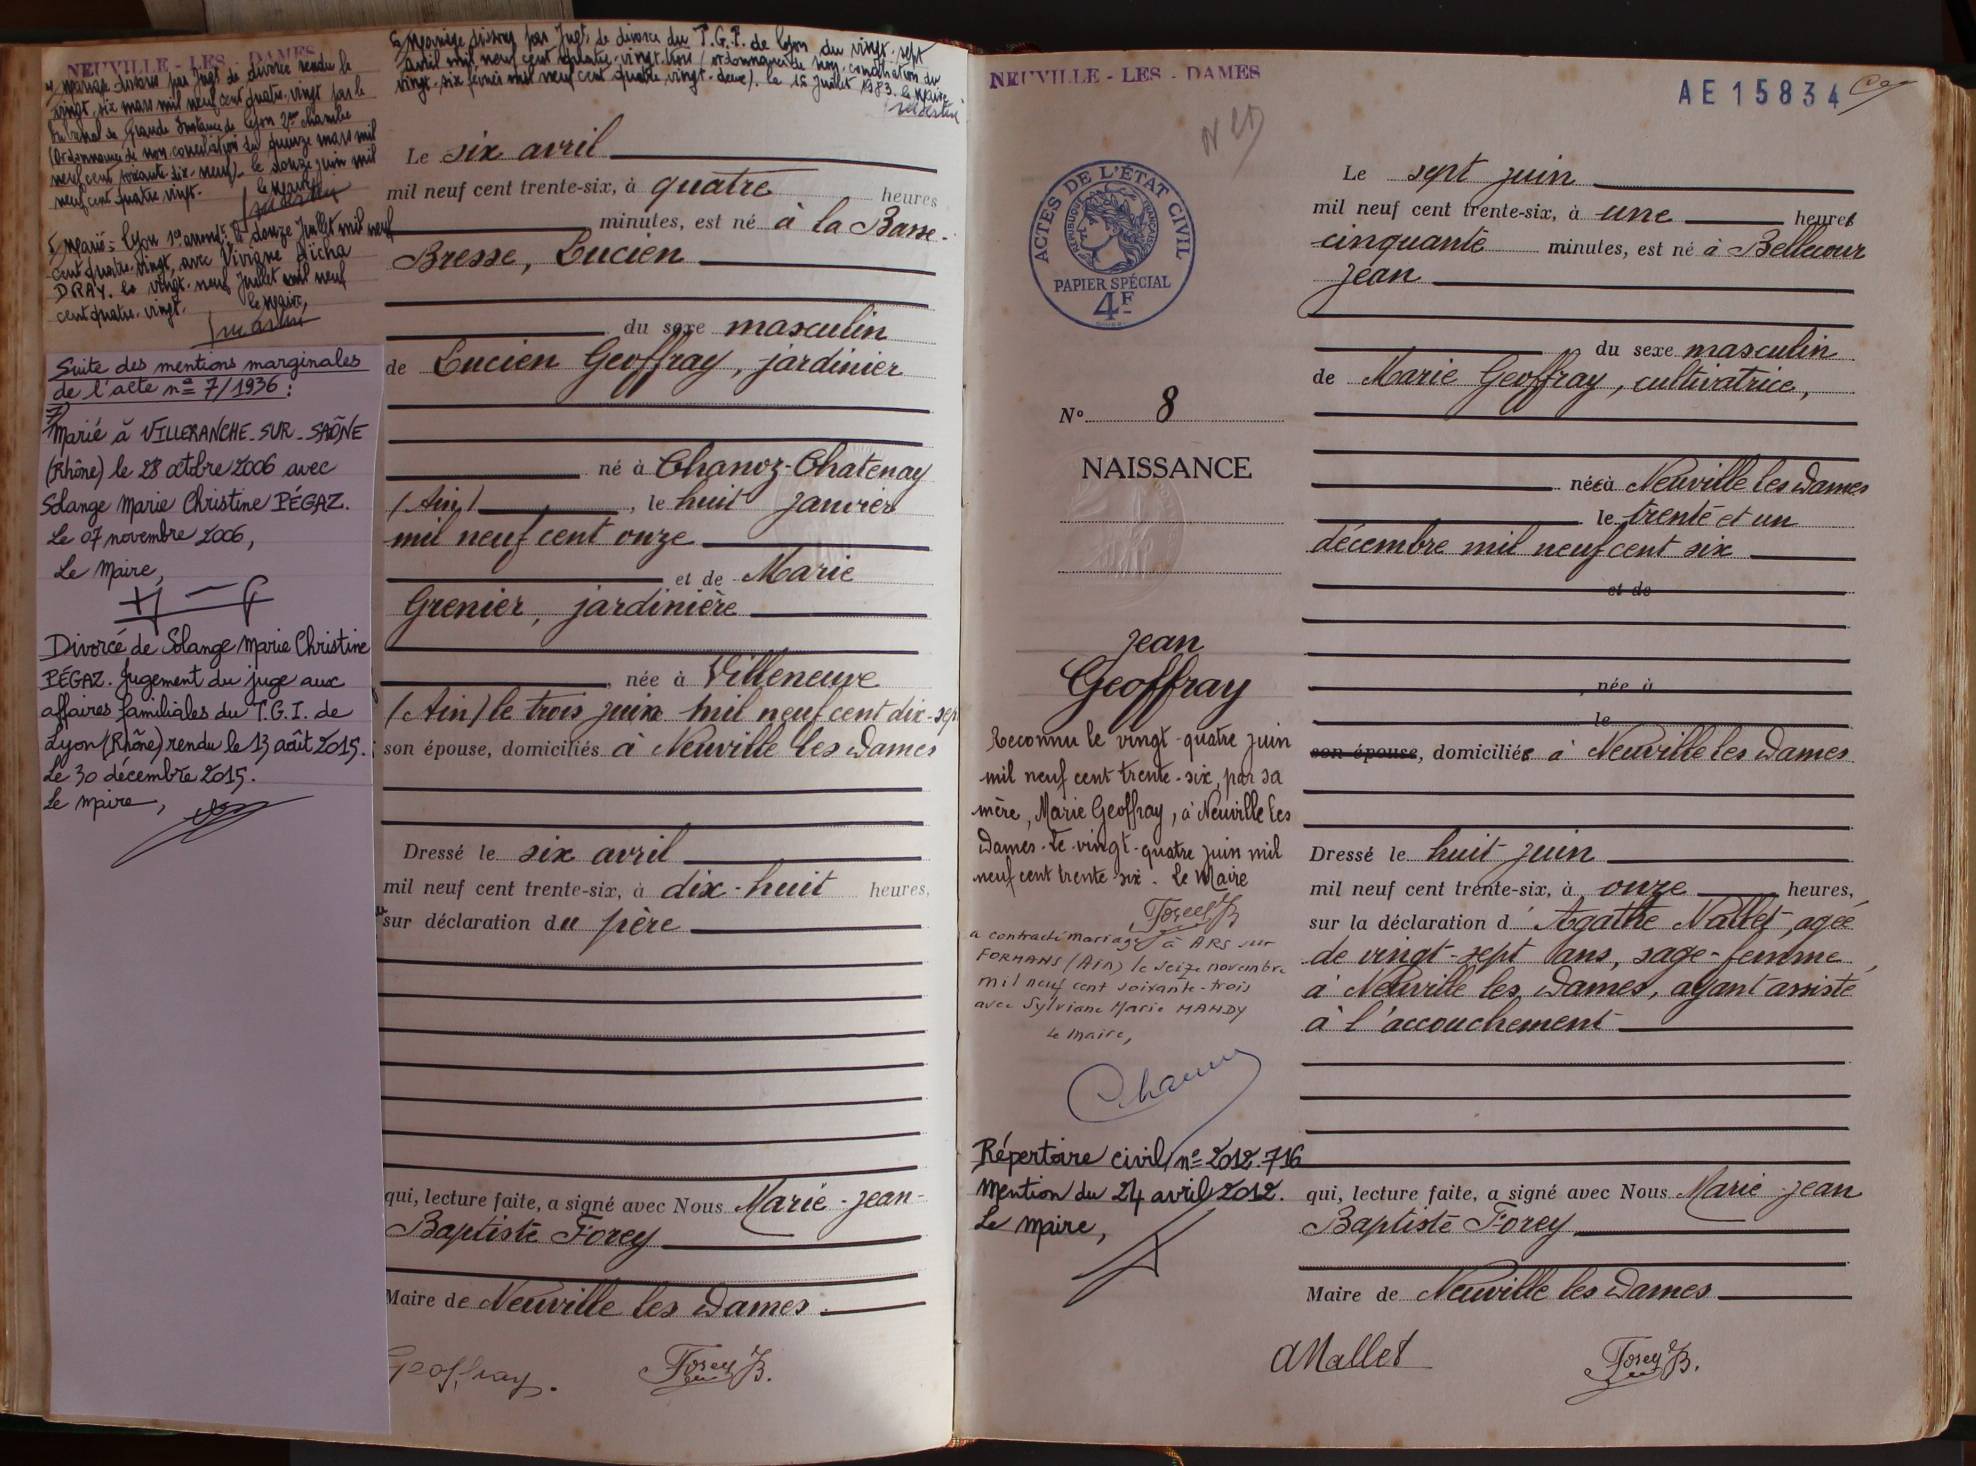 NEUVILLE - LES - DAMES
4) mariage dissous par Jugt de divorce rendu le
vingt-six mars mil neuf cent quatre-vingt par le
Tribunal de Grande Instance de Lyon 2me chambre
(Ordonnance de non conciliation du quinze mars mil
neuf cent soixante dix-neuf). le douze juin mil
neuf cent quatre vingt. le Maire
5) Marié à Lyon 1er arrondt le douze Juillet mil neuf
cent quatre-vingt, avec Viviane Aïcha
DRAY. Le vingt-neuf Juillet mil neuf
cent quatre-vingt. le Maire,
Suite des mentions marginales
de l'acte n° 7/1936 :
7)
Marié à VILLEFRANCHE-SUR-SAÔNE
(Rhône) le 28 octobre 2006 avec
Solange Marie Christine PÉGAZ.
Le 07 novembre 2006,
Le Maire,
Divorcé de Solange Marie Christine
PÉGAZ. Jugement du juge aux
affaires familiales du T.G.I. de
Lyon (Rhône) rendu le 13 août 2015.
Le 30 décembre 2015.
Le Maire,
6) Mariage dissous par Jugt de divorce du T.G.I. de Lyon du vingt-sept
avril mil neuf cent quatre-vingt-trois (ordonnance de non-conciliation du
vingt-six février mil neuf cent quatre vingt-deux). le 15 Juillet 1983. le Maire
Le six avril
mil neuf cent trente-six, à quatre heures
minutes, est né à la Basse-
Bresse, Lucien
du sexe masculin
de Lucien Geoffray, jardinier
né à Chanoz-Chatenay
(Ain), le huit janvier
mil neuf cent onze
et de Marie
Grenier, jardinière
, née à Villeneuve
(Ain) le trois juin mil neuf cent dix-sept
son épouse, domiciliés à Neuville les Dames
Dressé le six avril
mil neuf cent trente-six, à dix-huit heures,
sur déclaration du père
qui, lecture faite, a signé avec Nous Marie-Jean-
Baptiste Forey
Maire de Neuville les Dames.
Geoffray. Forey JB.
NEUVILLE - LES - DAMES
AE 15834
ACTES DE L'ÉTAT CIVIL
RÉPUBLIQUE FRANÇAISE
PAPIER SPÉCIAL
4F
N° 8
NAISSANCE
Jean
Geoffray
Reconnu le vingt-quatre juin
mil neuf cent trente-six, par sa
mère, Marie Geoffray, à Neuville les
Dames. Le vingt-quatre juin mil
neuf cent trente-six. Le Maire
Forey JB
a contracté mariage à ARS sur
FORMANS (Ain) le seize novembre
mil neuf cent soixante-trois
avec Sylviane Marie MANDY
Le Maire,
Répertoire civil n° 2012.716
Mention du 24 avril 2012.
Le Maire,
Le sept juin
mil neuf cent trente-six, à une heures
cinquante minutes, est né à Bellecour
Jean
du sexe masculin
de Marie Geoffray, cultivatrice,
née à Neuville les Dames
le trente et un
décembre mil neuf cent six
et de
, née à
le
son épouse, domiciliée à Neuville les Dames
Dressé le huit juin
mil neuf cent trente-six, à onze heures,
sur la déclaration d'Agathe Mallet, agée
de vingt-sept ans, sage-femme,
à Neuville les Dames, ayant assisté
à l'accouchement
qui, lecture faite, a signé avec Nous Marie Jean
Baptiste Forey
Maire de Neuville les Dames
A Mallet Forey JB.